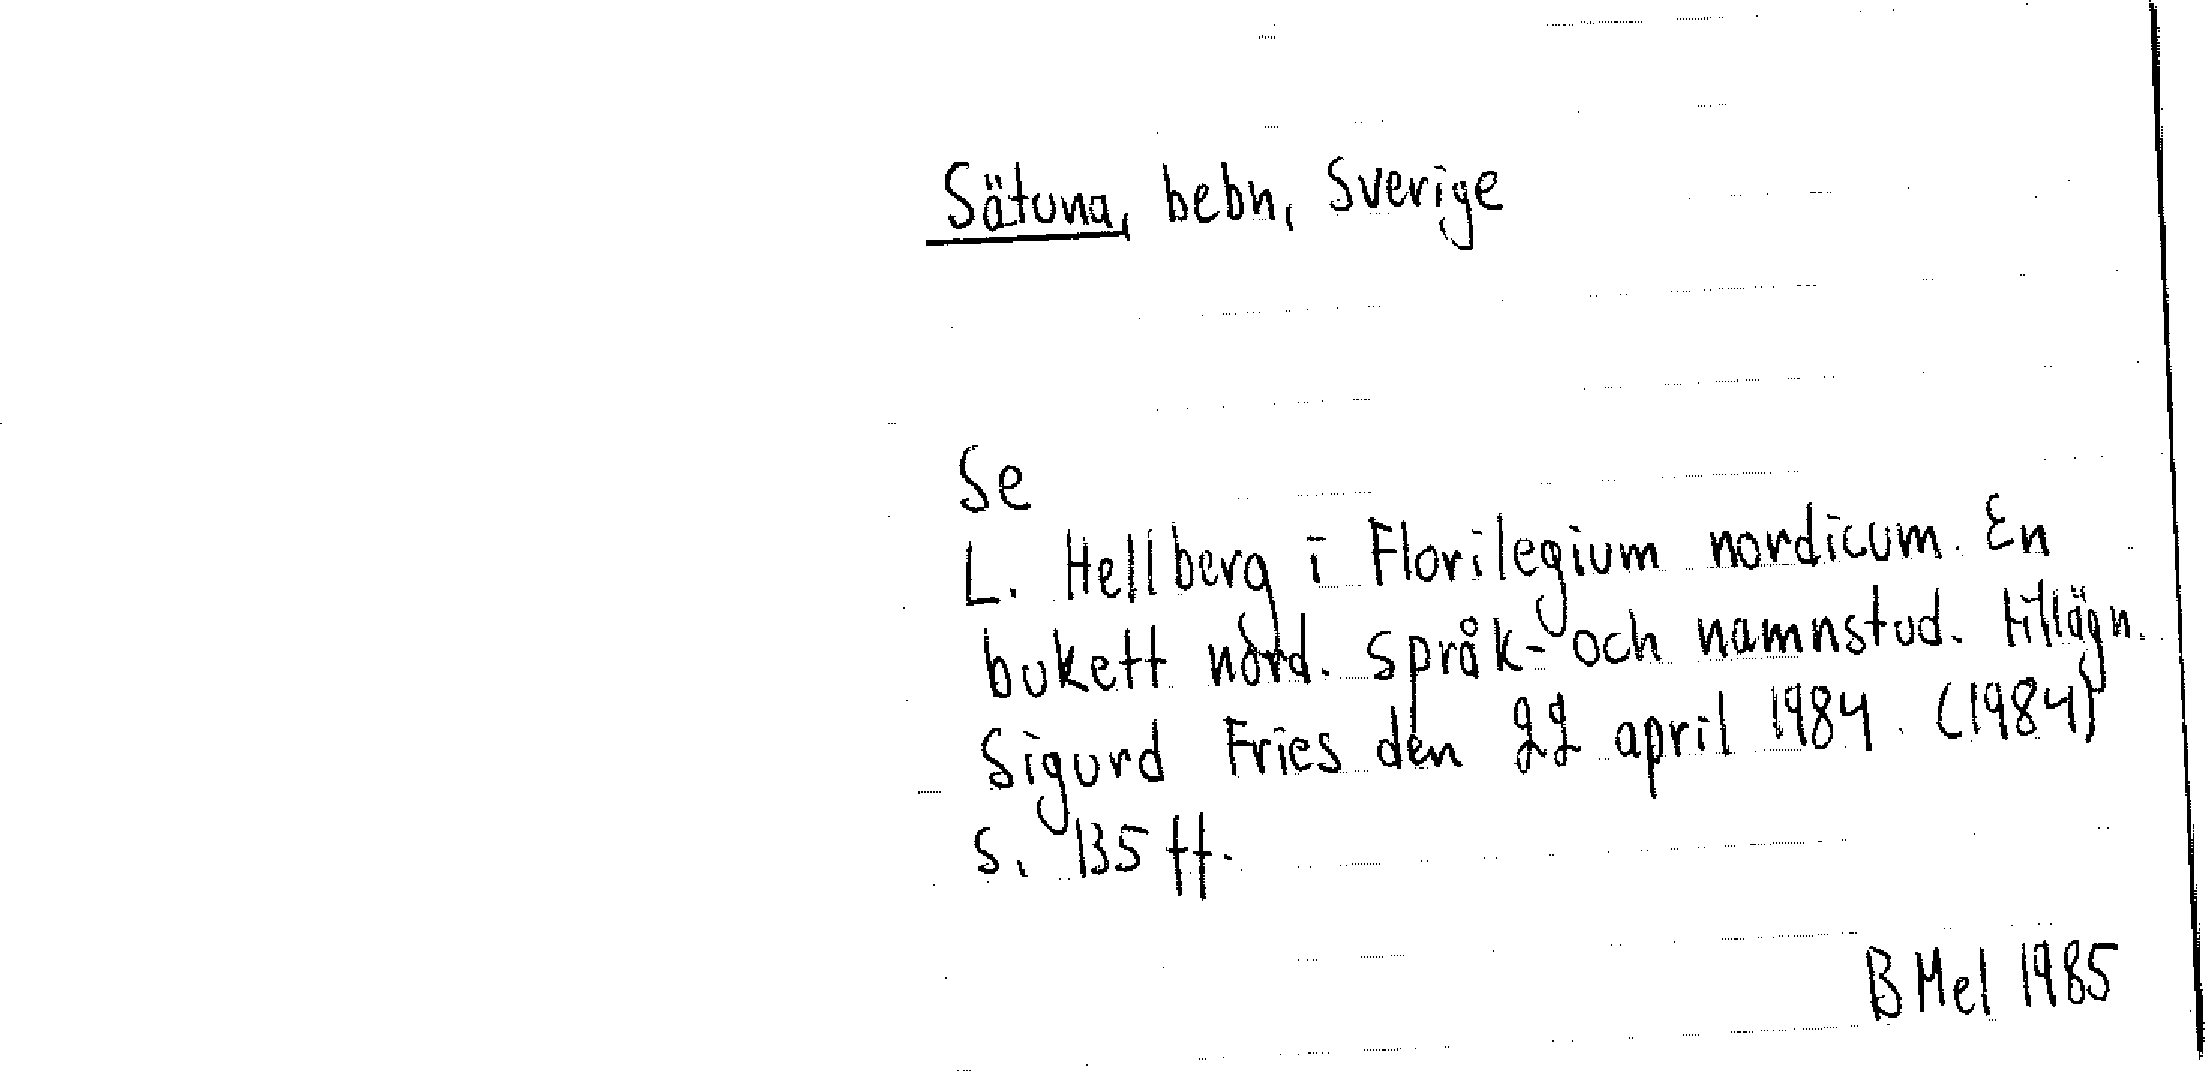 Sätuna, bebn, Sverige
Se
L. Hellberg i Florilegium nordicum. En
bukett nord. språk- och namnstud. tillägn.
Sigurd Fries den 22 april 1984. (1984)
s. 135 ff.
B Mel 1985